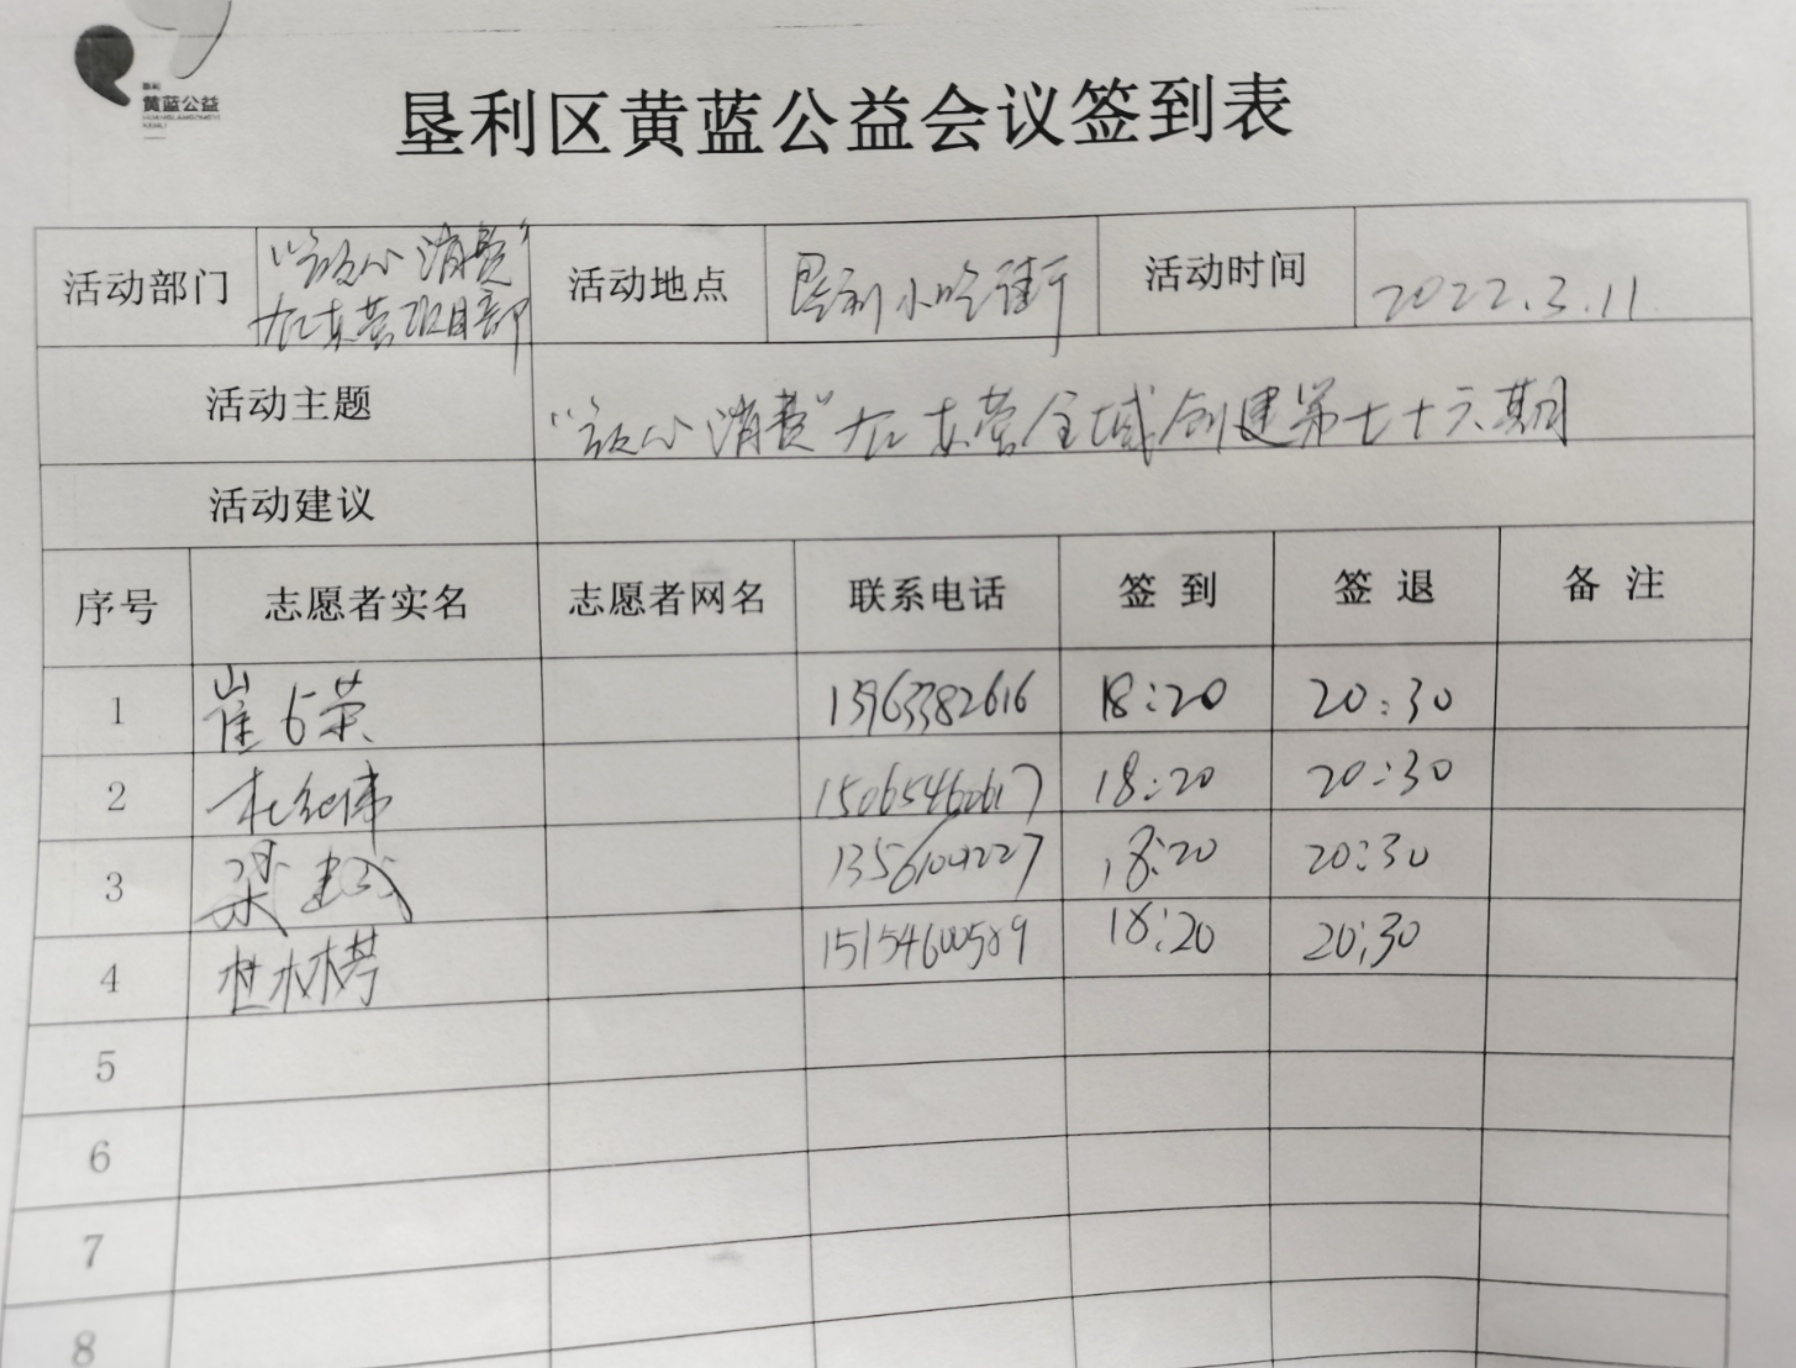 垦利
黄蓝公益
垦利区黄蓝公益会议签到表
活动部门 “放心消费” 在东营项目部 活动地点 垦利小吃街 活动时间 2022.3.11
活动主题 “放心消费”在东营全域创建第七十六期
活动建议
序号 志愿者实名 志愿者网名 联系电话 签到 签退 备注
1 崔 荣 15963382616 18:20 20:30
2 杜纪伟 15065460617 18:20 20:30
3 梁建 18:20 20:30
4 15154600589 18:20 20:30
5
6
7
8